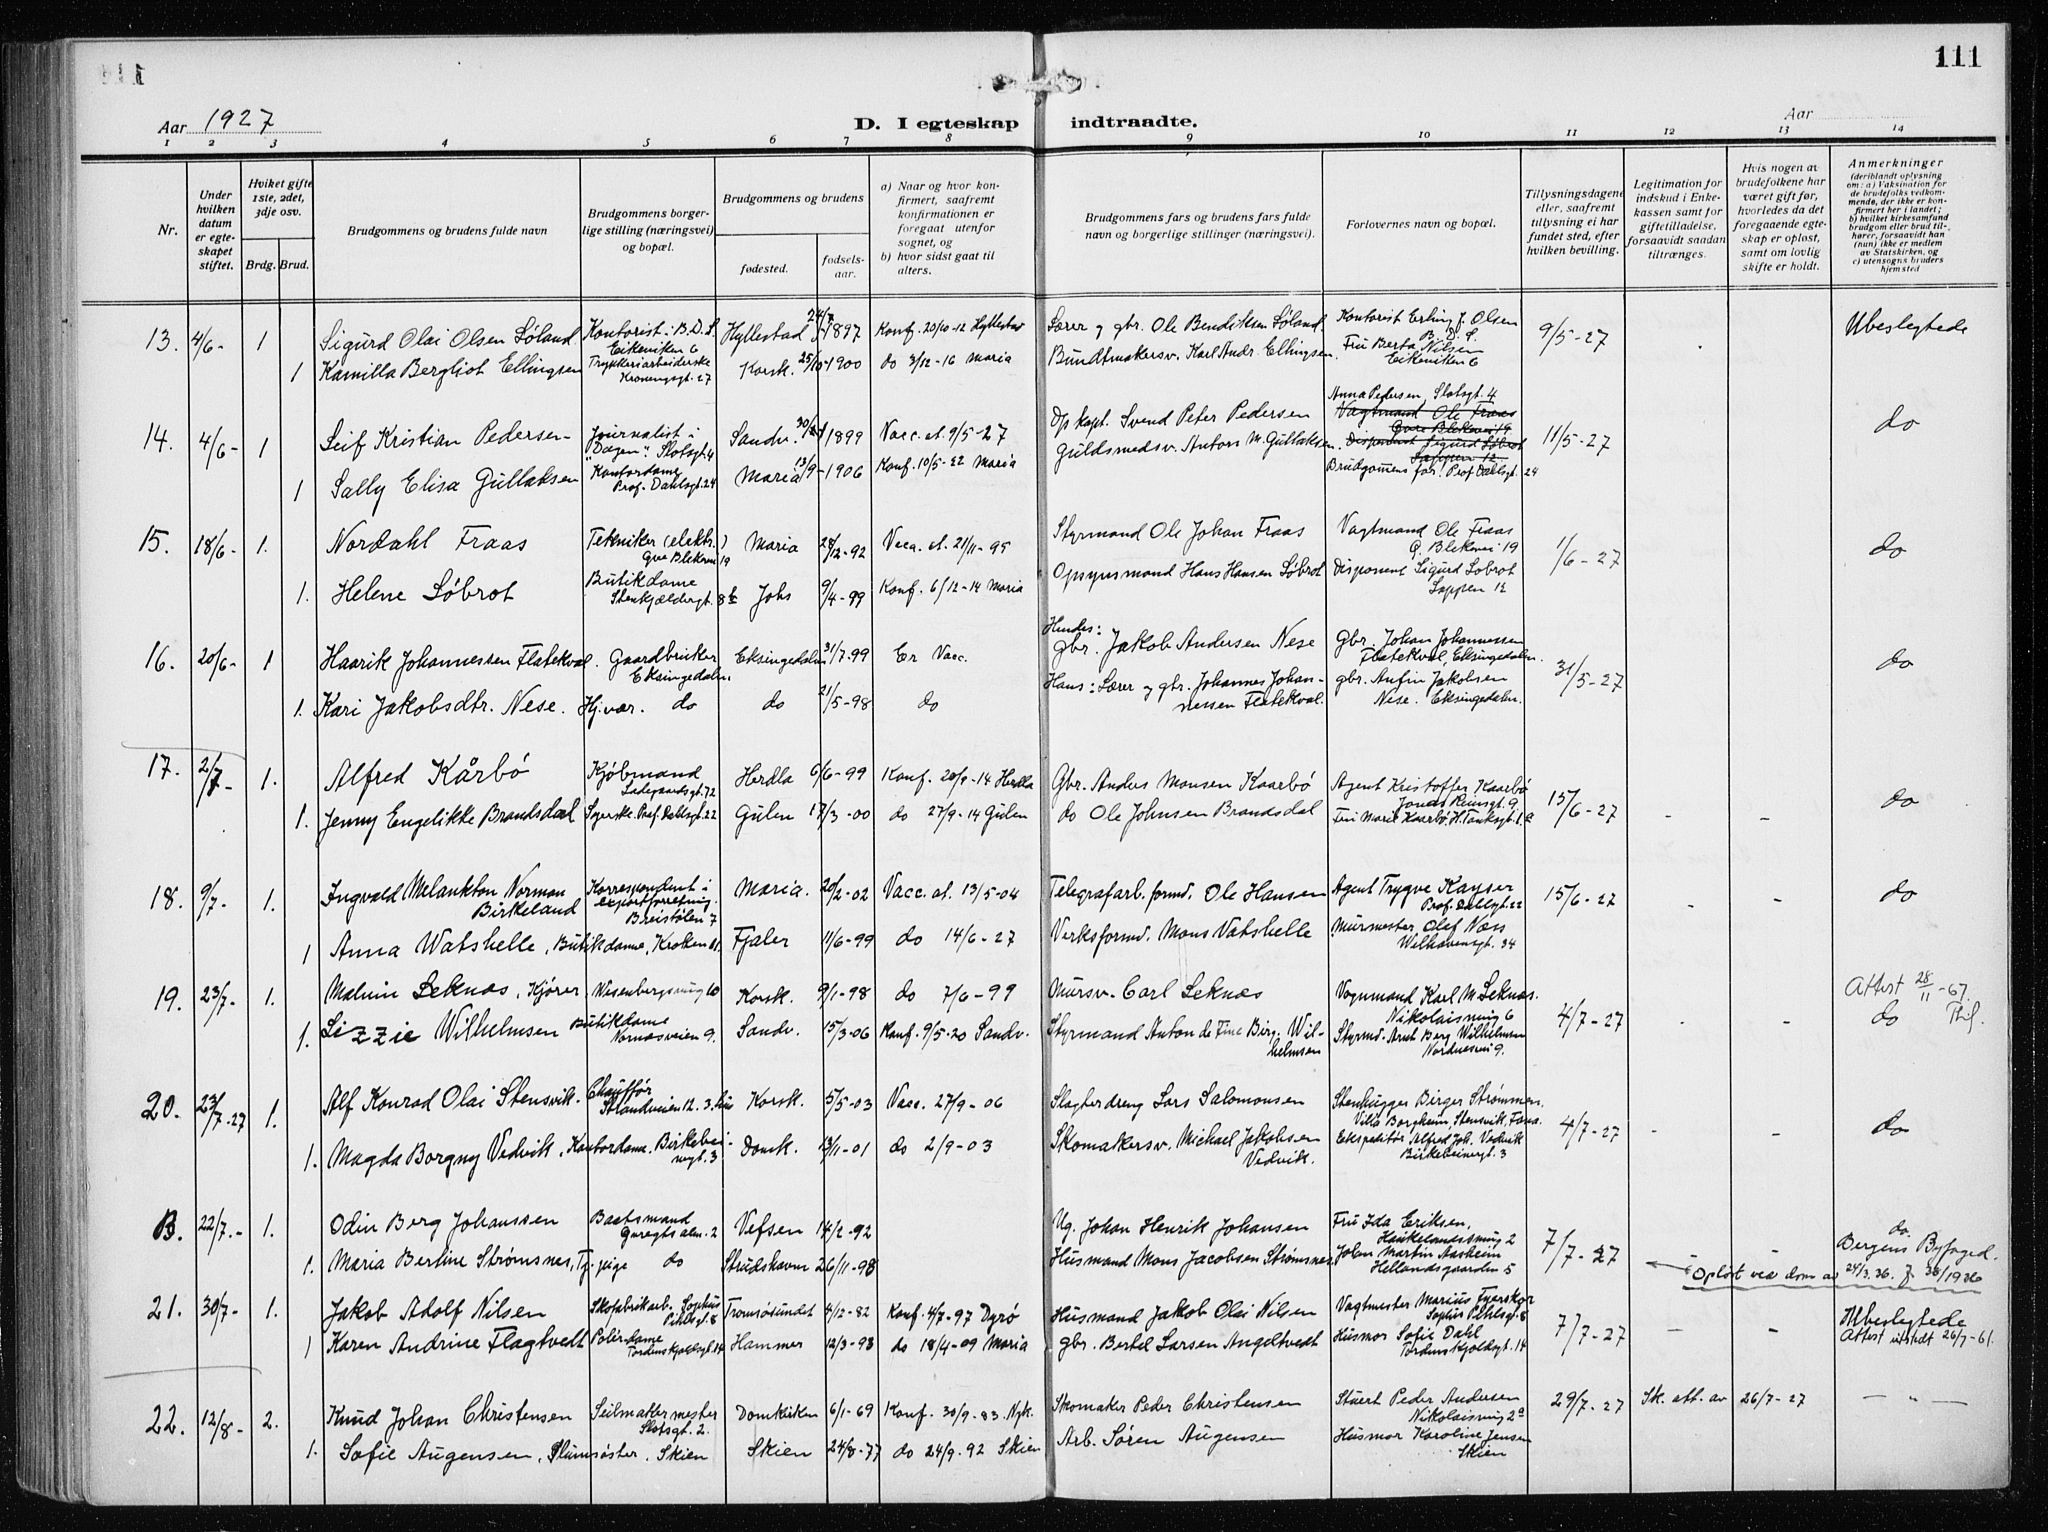 111
Aar 1927
D. I egteskap indtraadte.
Aar
1 2 3 4 5 6 7 8 9 10 11 12 13 14
Nr.
Under hvilken datum er egteskapet stiftet.
Hviket gifte 1ste, 2det, 3dje osv.
Brdg. Brud.
Brudgommens og brudens fulde navn
Brudgommens borgerlige stilling (næringsvei) og bopæl.
Brudgommens og brudens
fødested.
fødselsaar.
a) Naar og hvor konfirmert, saafremt konfirmationen er foregaat utenfor sognet, og
b) hvor sidst gaat til alters.
Brudgommens fars og brudens fars fulde navn og borgerlige stillinger (næringsvei).
Forlovernes navn og bopæl.
Tillysningsdagene eller, saafremt tillysning ei har fundet sted, efter hvilken bevilling.
Legitimation for indskud i Enkekassen samt for giftetilladelse, forsaavidt saadan tiltrænges.
Hvis nogen av brudefolkene har været gift før, hvorledes da det foregaaende egteskap er opløst, samt om lovlig skifte er holdt.
Anmerkninger
(deriblandt oplysning om: a) Vaksination for de brudefolks vedkommende, der ikke er konfirmert her i landet;
b) hvilket kirkesamfund brudgom eller brud tilhører, forsaavidt han (hun) ikke er medlem av Statskirken, og
c) utensogns bruders hjemsted
13. 4/6- 1 Sigurd Olai Olsen Søland Kontorist i B.D.S. Eikeviken 6 Hyllestad 24/ 1897 Konf. 20/10-12 Hyllestad Lærer og gbr. Ole Bendiksen Søland. Kontorist Erling J. Olsen B.D.S. 9/5-27 Ubeslegtede
1 Kamilla Bergliot Ellingsen Trykkeriarbeiderske Kroningsgt. 27 Korsk. 25/10 1900 do 3/12-16 Maria Bundtmakersv. Karl Andr. Ellingsen. Fru Berta Nilsen Eikeviken 6
14. 4/6- 1 Leif Kristian Pedersen Journalist i "Dagen" Slotsgt. 4 Sandv. 30/ 1899 Vacc. at. 9/5-27 Dpskapt. Svend Peter Pedersen Anna Pedersen, Slotsgt. 4 Vagtmand Ole Fraas Gvre Blekevei 19 11/5-27 do
1 Sally Elisa Gullaksen Kontordame Prof. Dahlsgt. 24 Maria 13/9-1906 Konf. 10/5-22 Maria Guldsmedsv. Anton M. Gullaksen. Disponent Sigurd Søbrot Lappen 12 Brudgomens far. Prof. Dahlsgt. 24
15. 18/6- 1. Nordahl Fraas Tekniker (elektr.) Gvre Blekevei 19 Maria 28/12-92 Vacc. at. 21/11-95 Styrmand Ole Johan Fraas Vagtmand Ole Fraas G. Blekevei 19 1/6-27 do
1. Helene Søbrot Butikdame Stenkjeldergt. 8b Johs 9/4-99 Konf. 6/12-14 Maria Opsynsmand Hans Hansen Søbrot Disponent Sigurd Søbrot Lappen 12
16. 20/6- 1 Haarik Johannessen Flatekval. Gaardbruker Eksingedalen. Eksingedalen 31/7-99 Er Vacc. Hendes: Gbr. Jakob Andersen Nese Gbr. Johan Johannessen Flatekval, Eksingedalen. 31/5-27 do
1. Kari Jakobsdtr. Nese. Hj.vær. do do 21/5-98 do Hans: Lærer og gbr. Johannes Johannessen Flatekval. gbr. Anfin Jakobsen Nese. Eksingedalen.
17. 2/7- 1. Alfred Kårbø Kjøbmand Ladegaardsgt. 72 Herdla 6/6-99 Konf. 20/9-14 Herdla Gbr. Anders Monsen Kaarbø Agent Kristoffer Kaarbø Jonas Reinsgt. 9 15/6-27 do
1. Jenny Engelikke Brandsdal Syerske. Prof. Dahlsgt. 22 Gulen 17/3-00 do 27/9-14 Gulen do Ole Johnsen Brandsdal Fru Marie Kaarbø. H. Tanksgt. 1
18. 9/7- 1. Ingvald Melankton Norman Birkeland Korrespondent i exportforretning. Breistølen 7 Maria. 20/2-02 Vacc. at. 13/5-04 Telegrafarb. formd. Ole Hansen Agent Trygve Kayser Prof. Dahlsgt. 22 15/6-27 do
1 Anna Watshelle, Butikdame, Kroken 11. Fjaler 11/6-99 do 14/6-27 Verksformd. Mons Vatshelle Murmester Olaf Næss Welhavensgt. 34
19. 23/7- 1. Malvin Leknæs, Kjører Wesenbergsmug 10 Korsk. 9/1-98 do 7/6-99 Mursv. Carl Leknæs Vognmand Karl M. Leknæs. Nikolaismug 6 4/7-27 Attest 28/11-67. do
1. Lizzie Wilhelmsen Butikdame Nornæsveien 9. Sandv. 15/3-06 Konf. 9/5-20 Sandv. Styrmand Anton de Fine Berg Wilhelmsen Styrmd. Arnt Berg Wilhelmsen Nordnesvei 9.
20. 23/7-27 1. Alf Konrad Olai Stensvik. Chauffør Strandveien 12. 3. hus Korsk. 5/5-03 Vacc. 27/9-06 Slagterdreng Lars Salomonsen Stenhugger Birger Strømmen. Villa Borgheim, Stensvik, Fana. 4/7-27 do
1. Magda Borgny Vedvik. Kontordame. Birkebeinergt. 3 Domk. 13/11-01 do 2/9-03 Skomakersv. Michael Jakobsen Vedvik. Ekspeditør Alfred Joh. Vedvik Birkebeinergt. 3
B. 22/7.- 1. Odin Berg Johanssen Baatsmand 2 Vefsen 14/2-92 Ug. Johan Henrik Johansen Fru Ida Eriksen, Haukelandssmug 2 7/7-27 do. Bergens Byfoged.
1. Maria Bertine Strømsnes, Tj. pige do Strudshavn 26/11-98 Husmand Mons Jacobsen Strømsnes. Johan Martin Aasheim Hellandsgaarden 5 Opløst ved dom av 24/3.36.
21. 30/7- 1. Jakob Adolf Nilsen Skofabrikarb. Sophus Pihlsgt. 8 Tromsøsundet 4/12-82 Konf. 4/7-97 Dyrø Husmand Jakob Olai Nilsen Vagtmester Marius Fyerskor Sophus Pihlsgt. 8 7/7-27 Ubeslegtede
1 Karen Andrine Flagtvedt Polérdame Tordenskjoldsgt. 14 Hammer 12/3-93 do 18/4-09 Maria gbr. Bertel Larsen Angeltvedt Husmor Sofie Dahl Tordenskjoldsgt. 14 Attest utstedt 26/7-61.
22. 12/8- 2. Knud Johan Christensen Seilmakermester Slotsgt. 2. Domkirken 6/1-69 Konf. 30/9-83. Nyk. Skomaker Peder Christensen Stuert Peder Andersen Nikolaismug 2a 29/7-27 Sk. att. av 26/7-27 — " —
1. Sofie Augensen, Slumsøster, Skien Skien 24/8-77 do 24/9-92 Skien Arb. Søren Augensen Husmor Karoline Jensen Skien